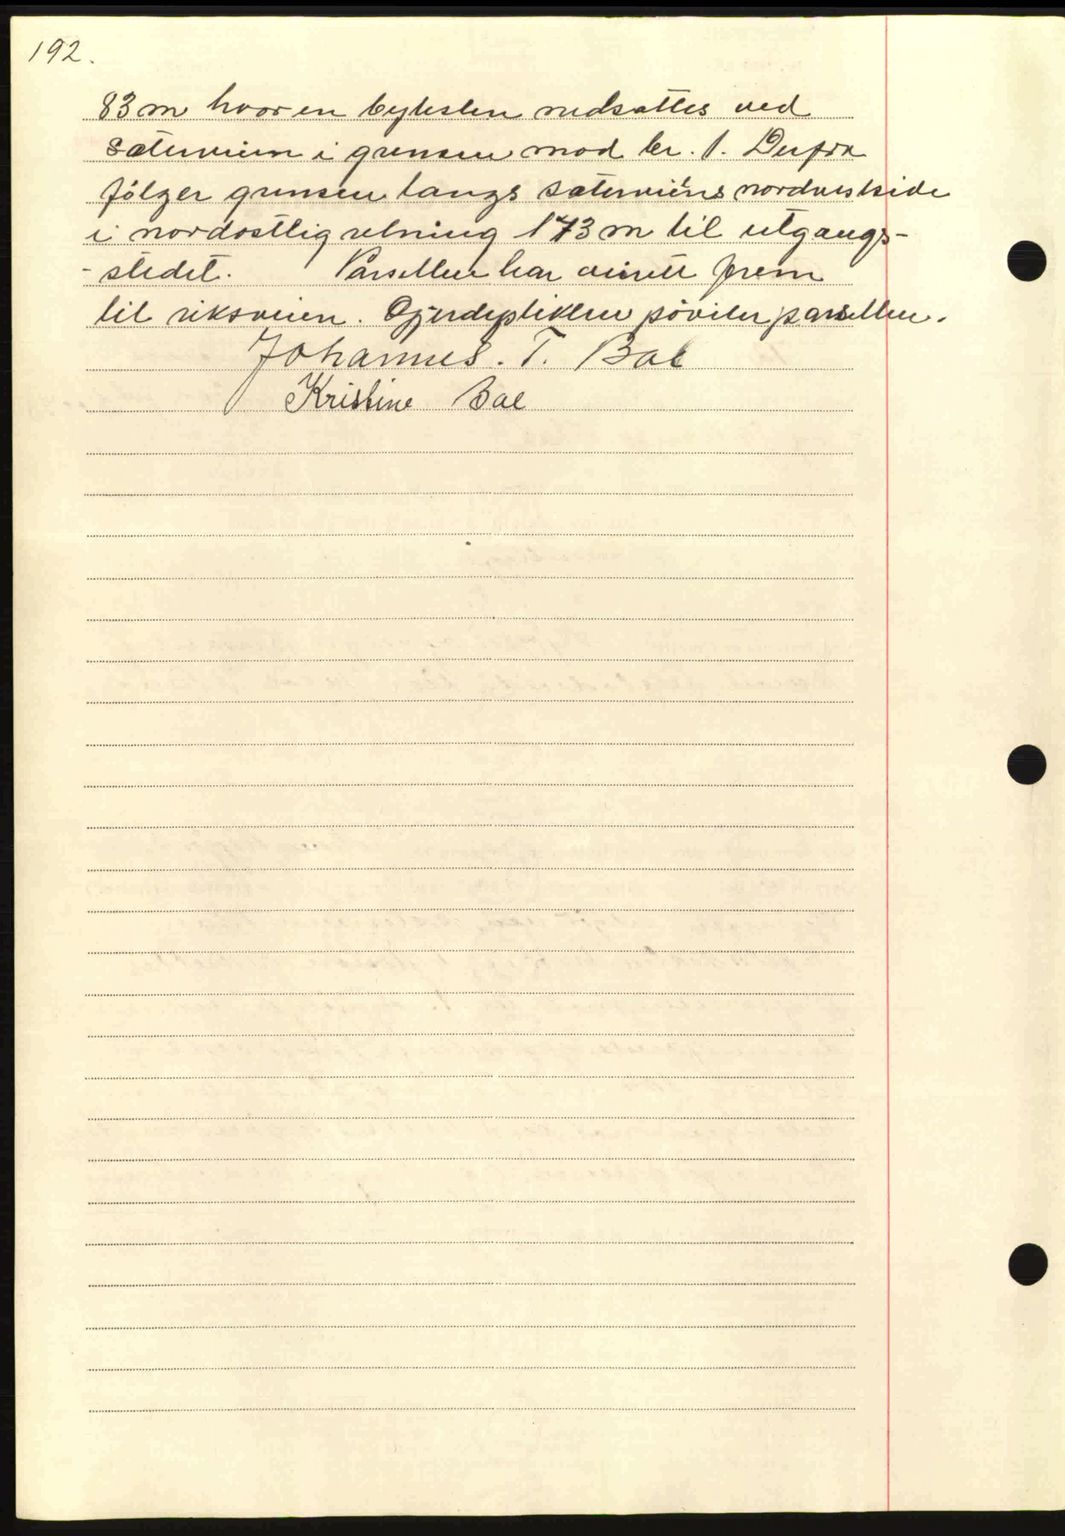 192.
83 m hvor en bytesten nedsattes ved
sæterveien i grensen mod br. 1. Derfra
følger grensen langs sæterveiens nordvestside
i nordostlig retning 173 m til utgangs-
- stedet. Parsellen har veirett frem
til riksveien. Gjerdeplikten påviler parsellen.
Johannes. T. Bae
Kristine Bae